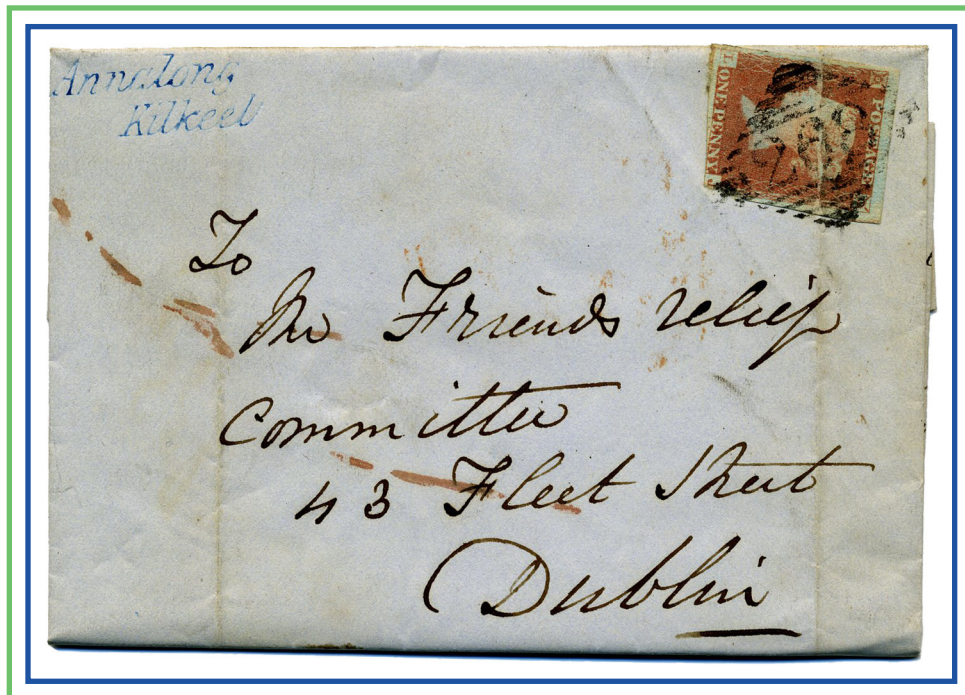 Annalong
Kilkeel
POSTAGE
ONE PENNY
To
The Friends relief
Committee
43 Fleet Street
Dublin